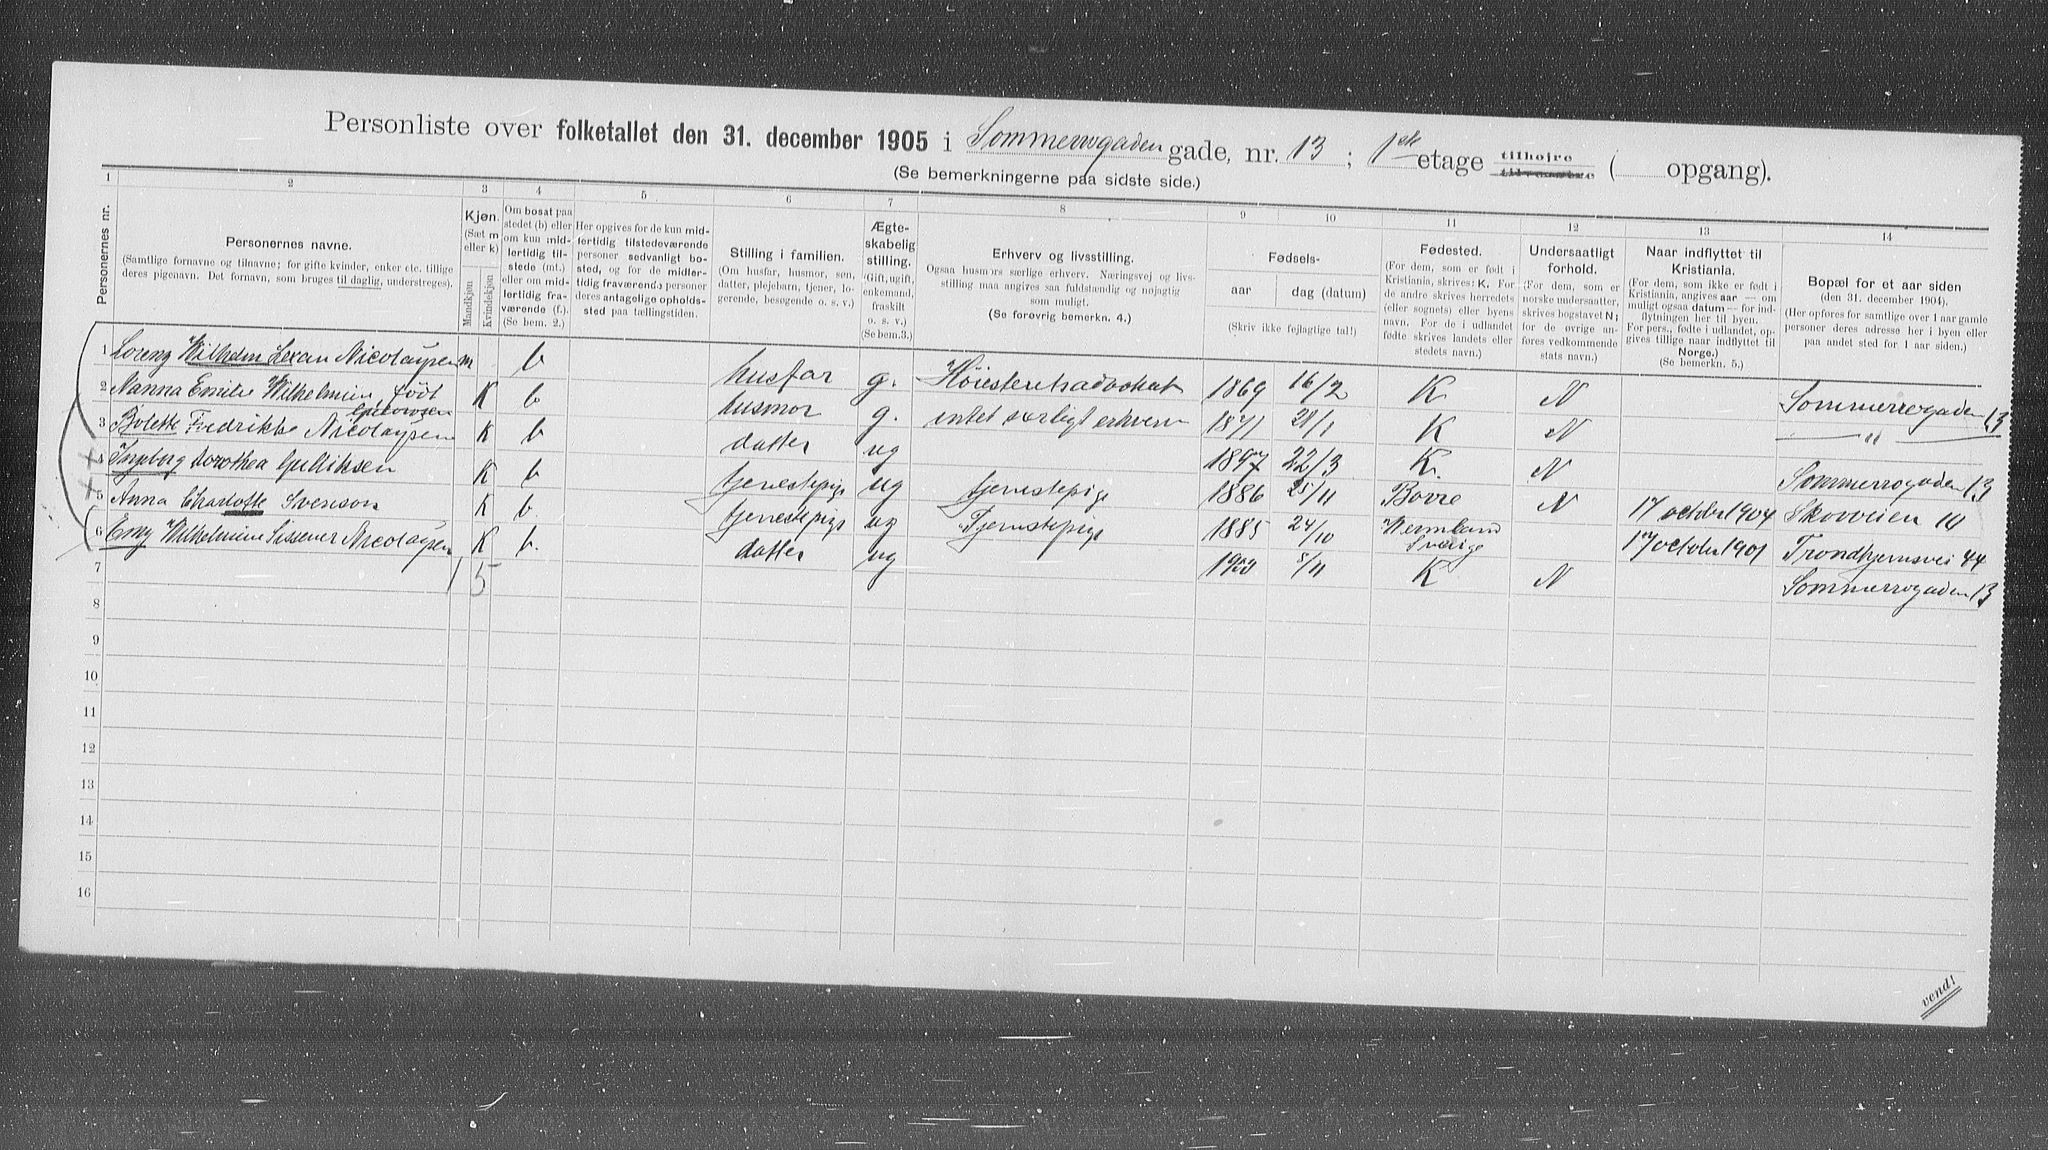 Personliste over folketallet den 31. december 1905 i Sommerrogaden gade, nr. 13 ; 1ste etage tilhøjre tilvenstre ( opgang).
(Se bemerkningerne paa sidste side.)
1 2 3 4 5 6 7 8 9 10 11 12 13 14
Personernes nr.
Personernes navne.
(Samtlige fornavne og tilnavne; for gifte kvinder, enker etc. tillige
deres pigenavn. Det fornavn, som bruges til daglig, understreges).
Kjøn.
(Sæt m
eller k)
Mandkjøn
Kvindekjøn
Om bosat paa
stedet (b) eller
om kun mid-
lertidig til-
stede (mt.)
eller om mid-
lertidig fra-
værende (f.).
(Se bem. 2.)
Her opgives for de kun mid-
lertidig tilstedeværende
personer sedvanligt bo-
sted, og for de midler-
tidig fraværende personer
deres antagelige opholds-
sted paa tællingstiden.
Stilling i familien.
(Om husfar, husmor, søn,
datter, plejebarn, tjener, lo-
gerende, besøgende o. s. v.)
Ægte-
skabelig
stilling.
(Gift, ugift,
enkemand,
fraskilt
o. s. v.)
(Se bem. 3.)
Erhverv og livsstilling.
Ogsaa husmors særlige erhverv. Næringsvej og livs-
stilling maa angives saa fuldstændig og nøjagtig
som muligt.
(Se forøvrig bemerkn. 4.)
Fødsels-
aar dag (datum)
(Skriv ikke fejlagtige tal!)
Fødested.
(For dem, som er født i
Kristiania, skrives: K. For
de andre skrives herredets
(eller sognets) eller byens
navn. For de i udlandet
fødte skrives landets eller
stedets navn.)
Undersaatligt
forhold.
(For dem, som er
norske undersaatter,
skrives bogstavet N;
for de øvrige an-
føres vedkommende
stats navn.)
Naar indflyttet til
Kristiania.
(For dem, som ikke er født i
Kristiania, angives aar — om
muligt ogsaa datum — for ind-
flytningen her til byen.
For pers., fødte i udlandet, op-
gives tillige naar indflyttet til
Norge.)
(Se bemerkn. 5.)
Bopæl for et aar siden
(den 31. december 1904).
(Her opføres for samtlige over 1 aar gamle
personer deres adresse her i byen eller
paa andet sted for 1 aar siden.)
1 Lorenz Wilhelm Lexau Nicolaysen m b husfar g. Høiesteretsadvokat 1869 16/2 K N Sommerrogaden 13
2 Nanna Emilie Wilhelmine, født K b husmor g. intet særligt erhverv 1871 28/1 K N — " —
3 Bolette Fredrikke Nicolaysen K b datter ug 1897 22/3 K. N Sommerrogaden 13
4 Ingeborg Dorothea Gulliksen K b tjenestepige ug tjenestepige 1886 25/11 Borre N 17 octbr 1904 Skovveien 10
5 Anna Charlotte Svenson K b. tjenestepige ug Tjenestepige 1885 24/10 Wermland Sverige 17 octobr 1901 Trondhjemsvei 44
6 Emy Wilhelmine Sissener Nicolaysen K b. datter ug 1900 8/11 K N Sommerrogaden 13
7 1 5
8
9
10
11
12
13
14
15
16
vend!